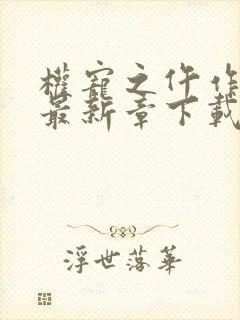 權寵之仵作
最新章下載
浮世落華